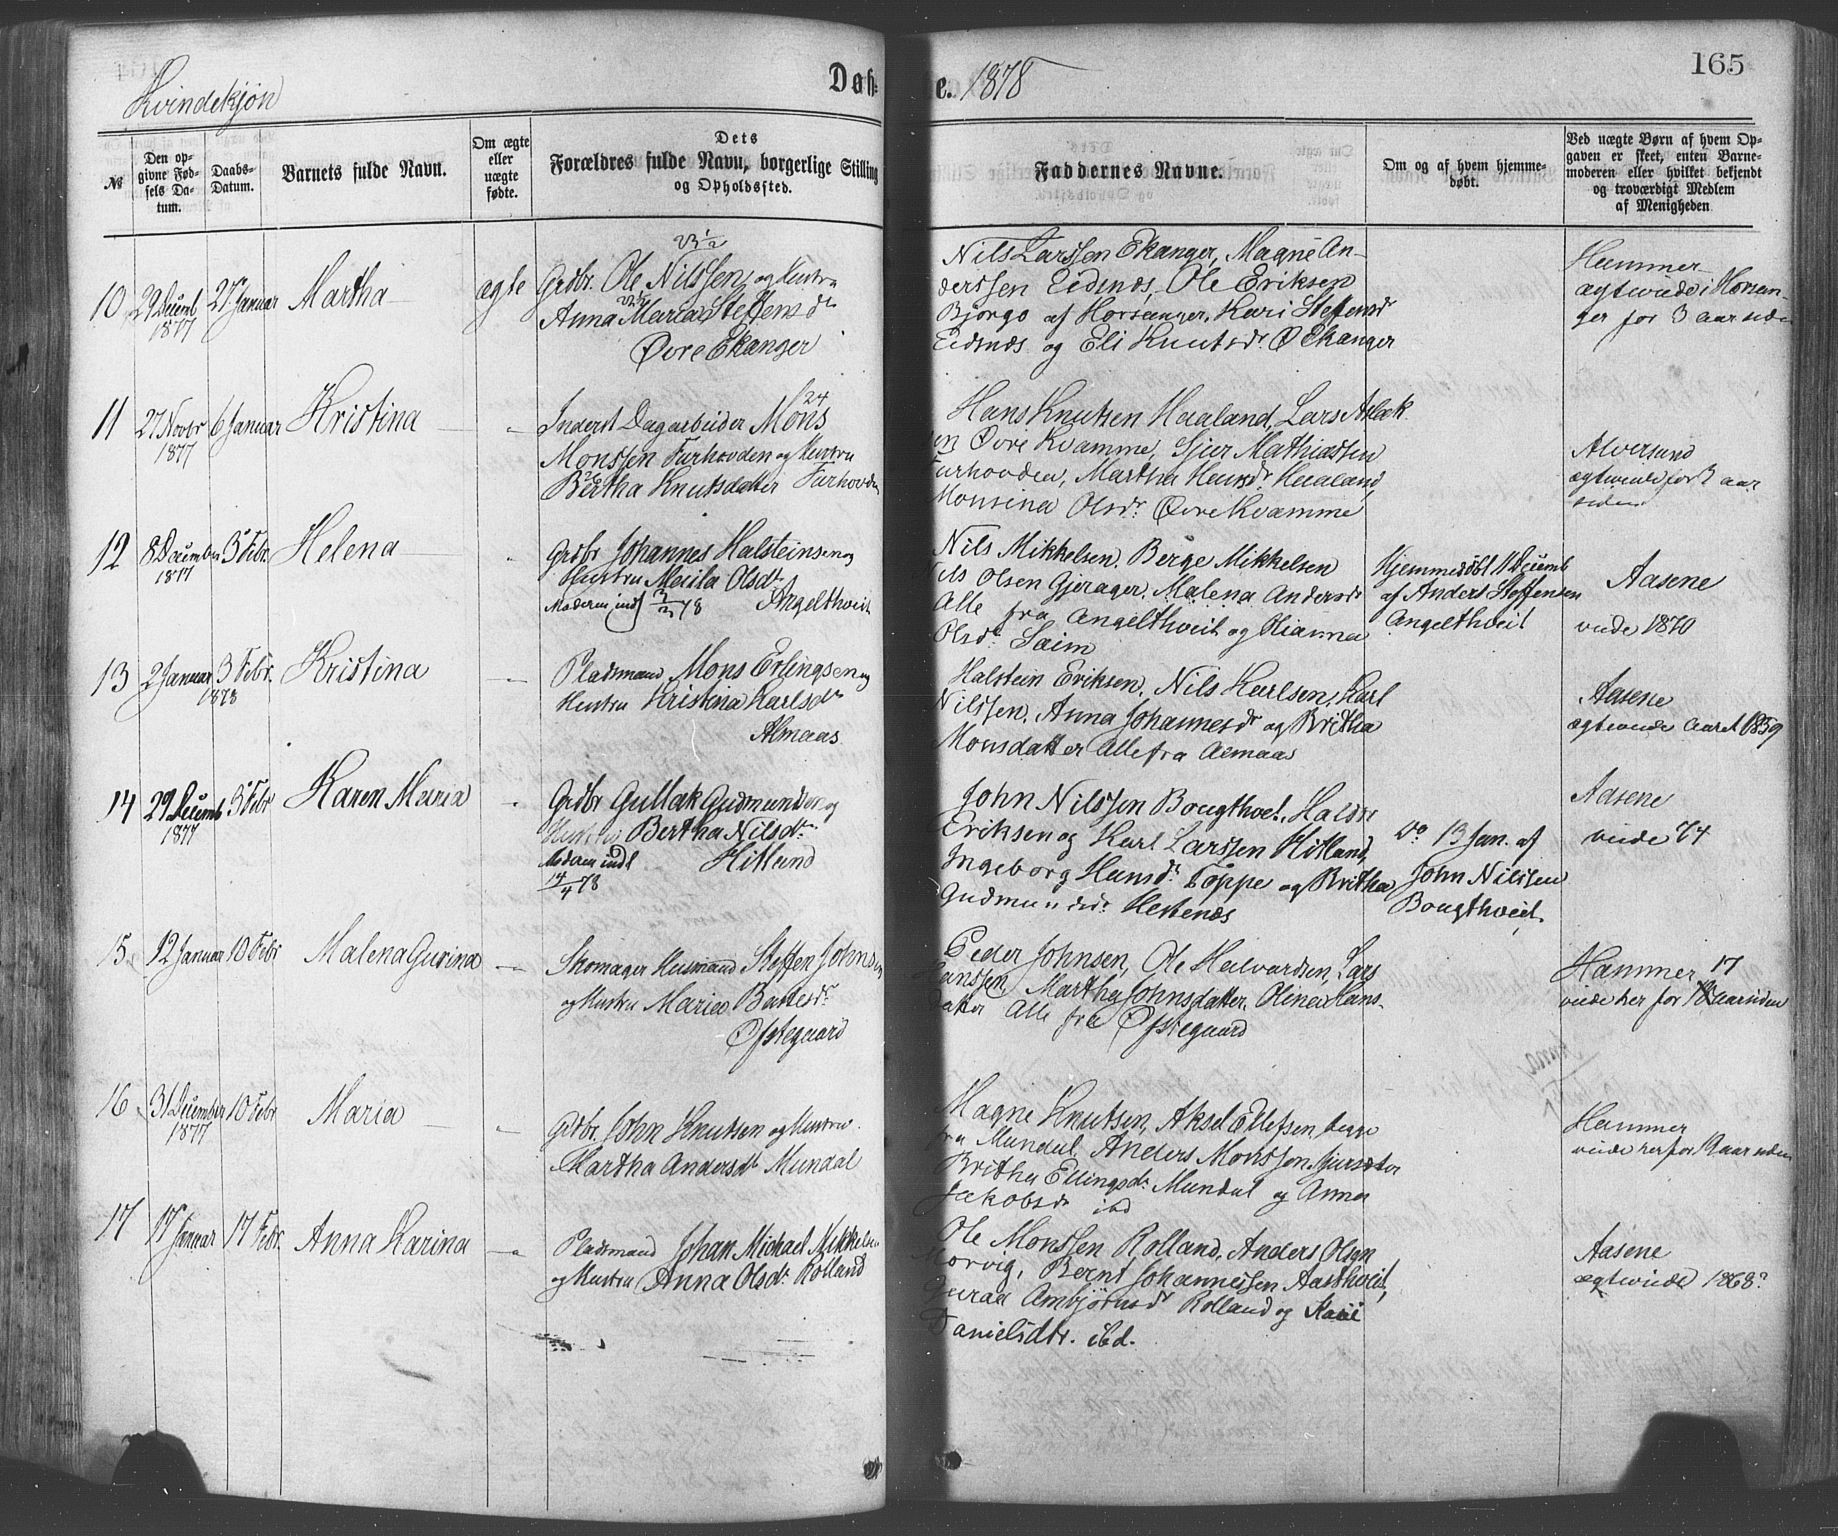 165
Kvindekjön
Døb-
te. 1878
№
Den op-
givne Fød-
sels Da-
tum.
Daabs-
Datum.
Barnets fulde Navn.
Om ægte
eller
uægte
fødte.
Dets
Forældres fulde Navn, borgerlige Stilling
og Opholdssted.
Faddernes Navne.
Om og af hvem hjemme-
døbt.
Ved uægte Børn af hvem Op-
gaven er skeet, enten Barne-
moderen eller hvilket bekjendt
og troværdigt Medlem
af Menigheden
10
29 Decemb
1877
27 Januar
Martha
ægte
Grdbr. Ole Nilssen og Hustru
Anna Maria Steffensdr
Øvre Ekanger
Nils Larssen Ekanger, Magne An-
derssen Eidsnæs, Ole Eriksen
Bjørgo af Hosanger, Kari Steffensdr
Eidsnæs og Eli Knutsdr Ø Ekanger
Hammer
ægtviede i Hosan-
ger for 3 aar siden
11
27 Novbr
1877
6 Januar
Kristina
24
Inderst Dagarbeider Mons
Monssen Furhovden og Hustru
Bertha Knutsdatter Furhovden
Hans Knutsen Haaland, Lars Aslak
sen Øvre Kvamme, Sjur Mathiassen
Furhovden, Martha Hansdr Haaland,
Monsina Olsdr. Øvre Kvamme
Alversund
ægtviede for 3 aar
siden
12
8 December
1877
3 Febr.
Helena
Grdbr Johannes Halsteinsen og
Hustru Marita Olsdr
Moderen indl 3/3 78 Angelthveit
Nils Mikkelsen, Berge Mikkelsen
Nils Olsen Gjerager, Malena Andersdr
Alle fra Angelthveit og Olianna
Olsdr Saim
Hjemmedöbt 11 Decemb
af Anders Steffensen
Angelthveit
Aasene
viede 1870
13
2 Januar
1878
3 Febr.
Kristina
Pladsmand Mons Erlingsen og
Hustru Kristina Karlsdr
Almaas
Halstein Eriksen, Nils Karlsen, Karl
Nilssen, Anna Johannesdr og Britha
Monsdatter Alle fra Almaas
Aasene
ægtviede Aaret 1859
14
29 Decemb
1877
3 Febr
Karen Maria
Grdbr Gullak Gudmundsen og
Hustru Bertha Nilsdr.
Moderen indl Hitland
14/4 78
John Nilssen Bougthveit, Halstein
Eriksen og Karl Larssen Hitland,
Ingeborg Hansdr. Toppe og Britha
Gudmundsdr Hestenæs
Do 13 Jan. af
John Nilssen
Bougthveit.
Aasene
viede 74
15
12 Januar
10 Febr
Malena Gurina
Skomager Husmand Steffen Johnsen
og Hustru Maria Baardsdr
Ofstegaard
Peder Johnsen, Ole Halvardsen, Lars
Hanssen, Martha Johnsdatter, Olina Hans-
datter Alle fra Ofstegaard
Hammer 17
viede her for aar siden
16
31 December
1877
10 Febr
Maria
Grdbr. John Knutsen og Hustru
Martha Andersdr Mundal
Magne Knutsen, Aksel Ellefsen, begge
fra Mundal, Anders Monssen Gjersæter
Britha Ellingsdr Mundal og Anna
Jakobsdr ibd
Hammer
viede her for 12 aar siden
17
17 Januar
17 Febr.
Anna Karina
Pladsmand Johan Michael Mikkelsen
og Hustru Anna Olsdr Rolland
Ole Monssen Rolland, Anders Olsen
Morvig, Bernt Johannessen Aasthveit,
Guroa Ambjörnsdr Rolland og Kari
Danielsdtr. ibd.
Aasene
ægtviede 1868?